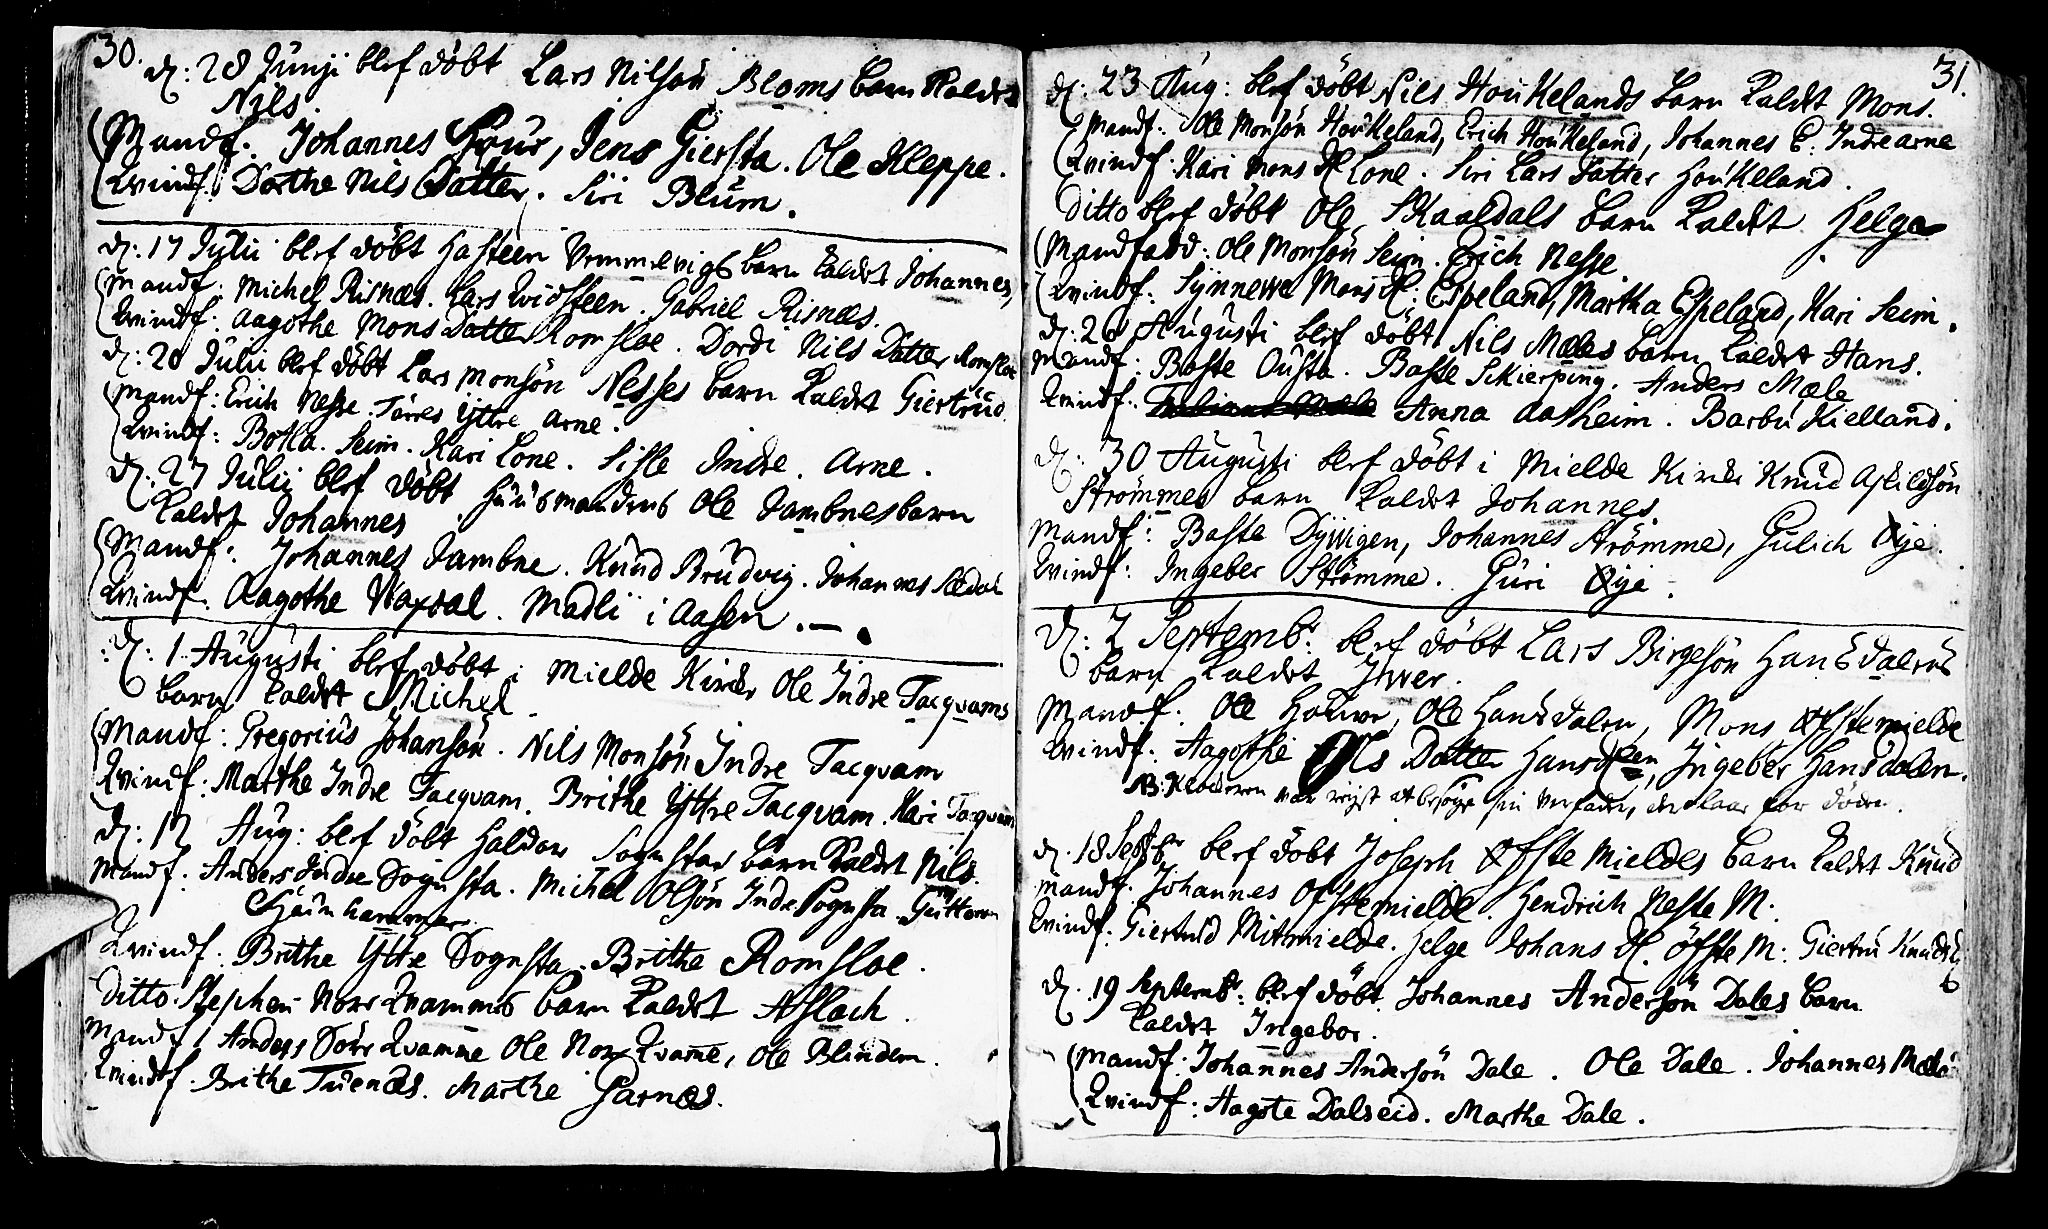 30.
d: 28 Junji blef döbt Lars Nilsön Bloms barn kaldet
Nils.
Mandf. Johannes Houe, Jens Giersta. Ole Kleppe.
Qvindf. Dorthe Nils Datter. Siri Blüm.
d: 17 Julii blef döbt Hasteen Vemmelvigs barn kaldet Johannes,
Mandf: Michel Risnæs. Lars Qvidsteen. Gabriel Risnæs.
Qvindf: Aagothe Mons Datter Romsloe. Dordi Nils Datter Romsloe
d: 20 Julii blef döbt Lars Monsön Nesses barn kaldet Giertrüd.
Mandf: Erich Nesse. Törres Yttre Arne.
Qvindf: Botla Seim. Kari Lone. Sisle Indre Arne.
d: 27 Julii blef döbt Huusmandens Ole Jambnes barn
kaldet Johannes
Mandf: Johannes Jambne. Knüd Brüdvig. Johannes Sædal
Qvindf. Aagothe Vaxdal. Madli i Aasen.
d: 1. Augusti blef döbt i Mielde Kirche Ole Indre Tacqvams
barn kaldet Michel
Mandf: Gregorius Johansön. Nils Monsön Indre Tacqvam
Qvindf: Marthe Indre Tacqvam. Brithe Yttre Tacqvam. Kari Tacqvam
d: 12 Aug: blef döbt Haldor Sognstad barn kaldet Nils.
Mandf. Anders Indre Sognsta. Michel Olsön Indre Sognsta. Guttorm
Hammer
Qvindf. Brithe Yttre Sognsta. Brithe Romsloe.
Ditto Stephen Norr Qvammes barn kaldet Aslach.
Mandf. Anders Sörr Qvamme Ole Norr Qvamme, Ole Blindem.
Qvindf. Brithe Tuenæs. Marthe Garnæs.
31.
d: 23 Aug: blef döbt Nils Houkelands barn kaldet Mons.
Mandf. Ole Monsön Houkeland, Erich Houkeland, Johannes E: Indrearne
Qvindf. Kari Mons D Lone. Siri Lars Datter Houkeland.
Ditto blef döbt Ole Skaaldals barn kaldet Helga
Mandfadd: Ole Monsön Seim. Erich Nesse
Qvindf: Synnewe Mons D: Espeland, Martha Espeland, Kari Seim.
d: 26 Augusti blef döbt Nils Mæles barn kaldet Hans.
Mandf: Baste Ousta. Baste Skierping. Anders Mæle
Qvindf. Anna Aasheim. Barbu Kielland.
d: 30 Augusti blef döbt i Mielde Kirche Knüd Askildsön
Strömmes barn kaldet Johannes.
Mandf: Baste Dyvigen, Johannes Strömme, Gulich Øye.
Qvindf: Ingeber Strömme. Guri Øye.
d: 2 Septembr: blef döbt Lars Birgesön Hansdalens
barn kaldet Iver.
Mandf. Ole Houwe, Ole Hansdalen, Mons Øfstemielde
Qvindf. Aagothe Ols Datter Hansdalen, Ingeber Hansdalen.
NB: var reist at besöge sin Verfader, der laae for döden.
d. 18 Septbr blef döbt Joseph Øfste Mieldes barn kaldet Knüd
Mandf. Johannes Ofstemielde. Hendrich Neste M.
Qvindf: Giertrud Mitmielde. Helge Johans D. öfste M: Giertru Knuds D
d. 19 Septembr: blef döbt Johannes Andersön Dales barn
kaldet Ingebor.
Mandf: Johannes Andersön Dale. Ole Dale. Johannes Mæle
Qvindf: Aagote Dalseid. Marthe Dale.